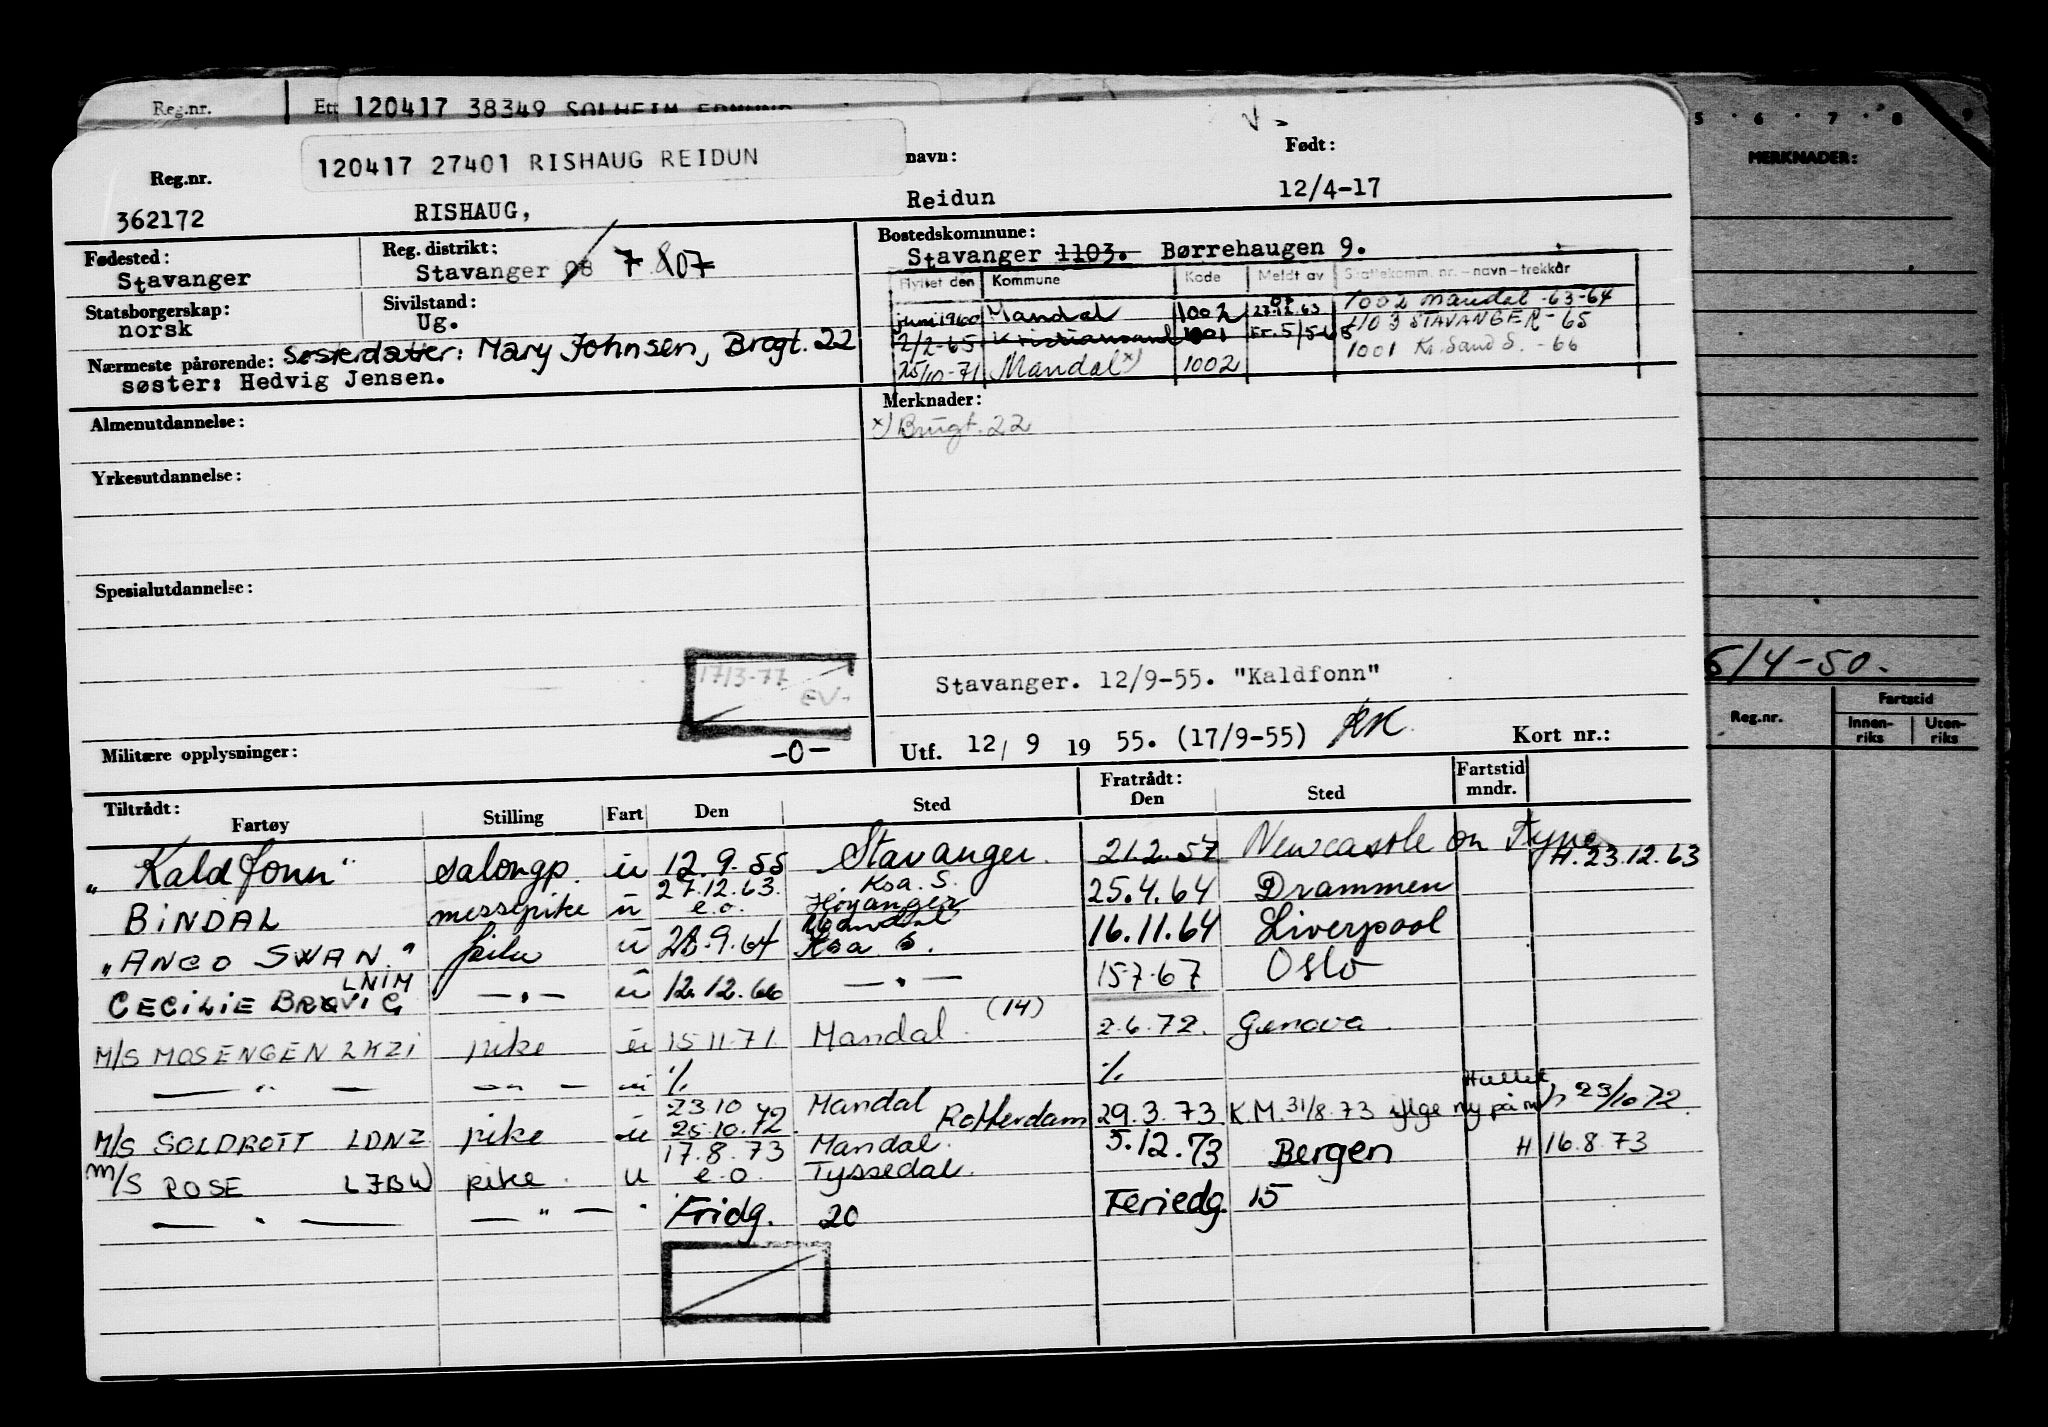 Reg.nr. Ett 120417 38349 SOLHEIM EDMUND
5 · 6 · 7 · 8 9
MERKNADER:
120417 27401 RISHAUG REIDUN
Reg.nr. navn: Født:
362172 RISHAUG, Reidun 12/4-17
Fødested: Reg. distrikt: Bostedskommune:
Stavanger Stavanger 08 7 807 Stavanger 1103. Børrehaugen 9.
Flyttet den Kommune Kode Meldt av Skattekomm. nr. - navn - trekkår
Statsborgerskap: Sivilstand:
norsk Ug.
juni 1960 Mandal 1002 1002 Mandal -63-64
2/2-65 Kristiansand 1001 Fr. 5/5-68 1103 STAVANGER - 65
25/10-71 Mandal x) 1002 1001 Kr. Sand S. - 66
Nærmeste pårørende: Søsterdatter: Mary Johnsen, Brogt. 22
søster: Hedvig Jensen.
Almenutdannelse: Merknader:
x) Brugt. 22
Yrkesutdannelse:
Spesialutdannelse:
17/3-77 EV-
Stavanger. 12/9-55. "Kaldfonn"
6/4-50.
Militære opplysninger: -0- Utf. 12/ 9 19 55. (17/9-55) Kort nr.:
Reg.nr. Fartstid Innen-riks Uten-riks
Tiltrådt: Fratrådt: Fartstid mndr.
Fartøy Stilling Fart Den Sted Den Sted
"Kaldfonn" salongp. u 12.9.55 Stavanger. 21.2.57 Newcastle on Tyne
27.12.63. Ksa. S. H. 23.12.63
BINDAL messepike u e.o. Høyanger 25.4.64 Drammen
Mandal
"ANCO SWAN" pike u 28.9.64 Ksa. S. 16.11.64 Liverpool
LNIM
CECILIE BRØVIG — " — u 12.12.66 — " — 15.7.67 Oslo
(14)
M/S MOSENGEN LKZI pike u 15.11.71 Mandal 2.6.72. Genova
— " — — " — u % %
23.10 Mandal
M/S SOLDROTT LDNZ pike u 25.10.72. Rotterdam 29.3.73 K.M. 31/8.73 iflge ny på m/ Hullet h 23/10 72.
17.8.73 Mandal.
M/S ROSE LJBW pike u e.o. Tyssedal. 5.12.73 Bergen H 16.8.73
— " — — " — " Fridg. 20 Feriedg. 15